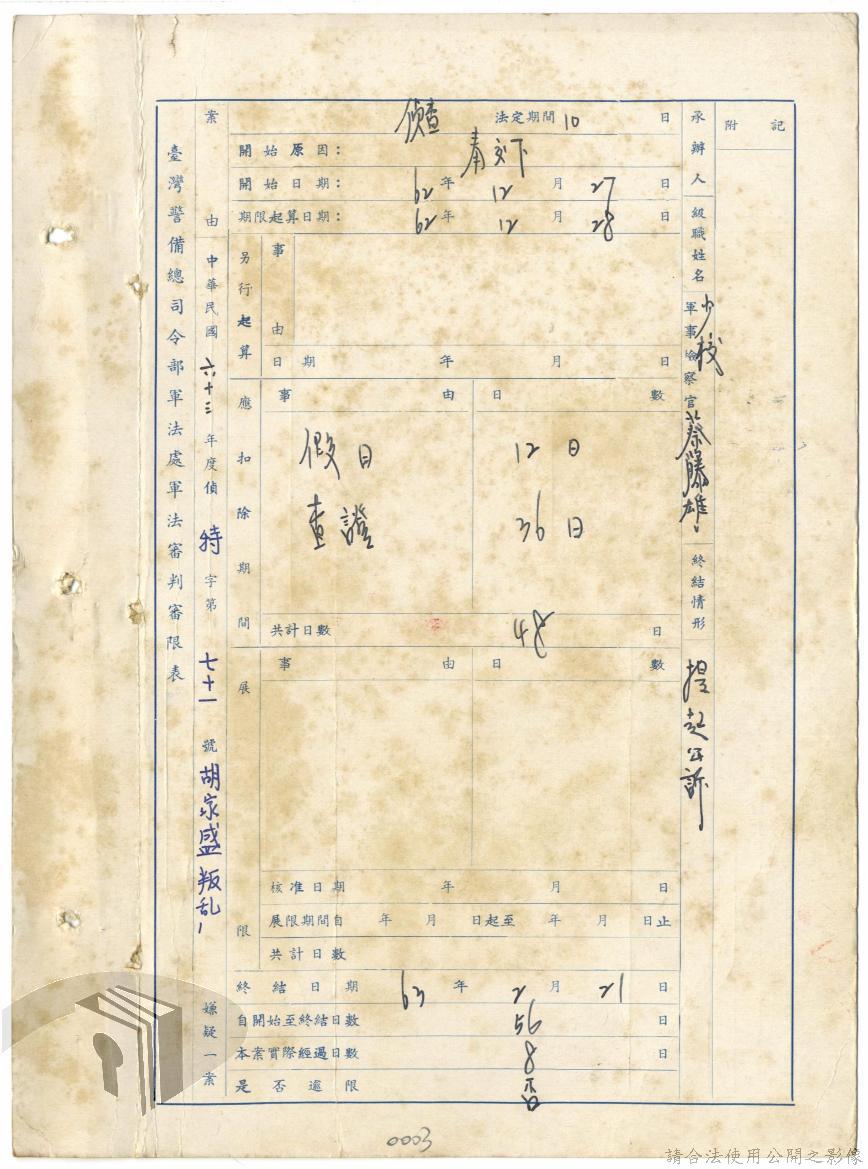 臺灣警備總司令部軍法處軍法審判審限表
案由 中華民國六十三年度偵特字第七十一號胡家盛叛乱嫌疑一案
偵查 法定期間10日
開始原因：奉交下
開始日期：62年12月27日
期限起算日期：62年12月28日
另行起算 事由
日期 年 月 日
應扣除期間 事由 日數
假日 12日
查證 36日
共計日數 48日
展限 事由 日數
核准日期 年 月 日
展限期間自 年 月 日起至 年 月 日止
共計日數
終結日期 63年2月21日
自開始至終結日數 56日
本案實際經過日數 8日
是否逾限 否
承辦人 級職姓名 少校軍事檢察官蔡藤雄
終結情形 提起公訴
附記
0003
請合法使用公開之影像